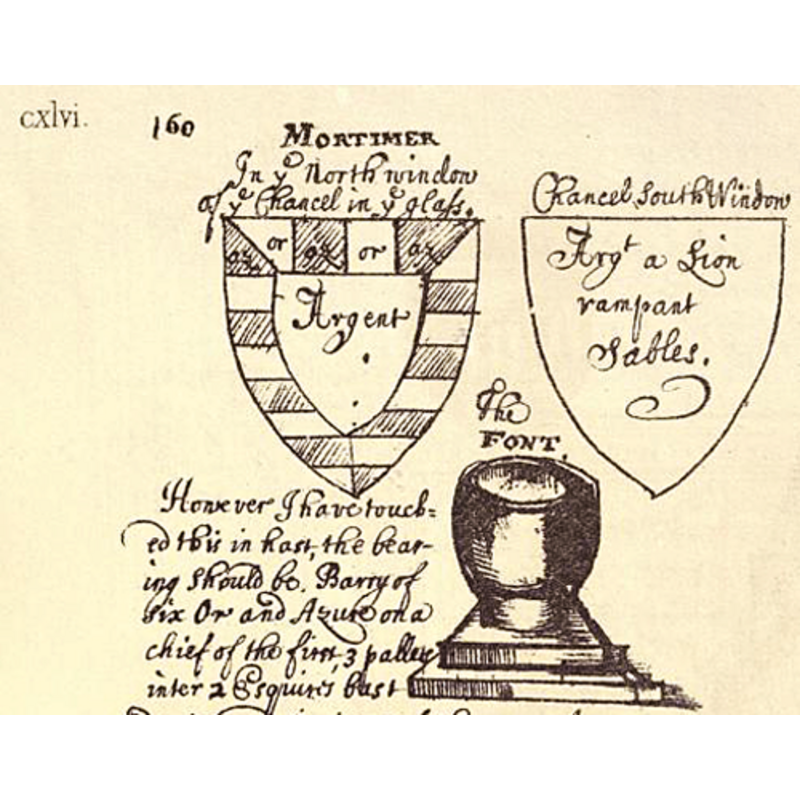 cxlvi.
160
MORTIMER
In yᵉ North window
of yᵉ Chancel in yᵉ glass.
az or az or az
Argent
Chancel South Window
Argᵗ a Lion
rampant
Sables.
The
FONT.
However I have touch=
ed this in hast, the bear-
ing should be. Barry of
six Or and Azure on a
chief of the first, 3 palleys
inter 2 Esquires bast